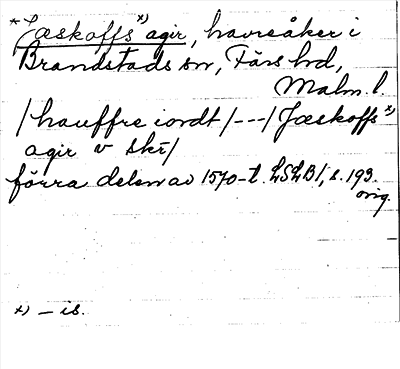 *Jæskoffs *) agir, havreåker i
Brandstads sn, Färs hd,
Malm. l.
/hauffre iordt/---/Jæskoffs *)
agir v skr/
förra delen av 1570-t. LSLB1, s. 193.
orig.
*) – is.